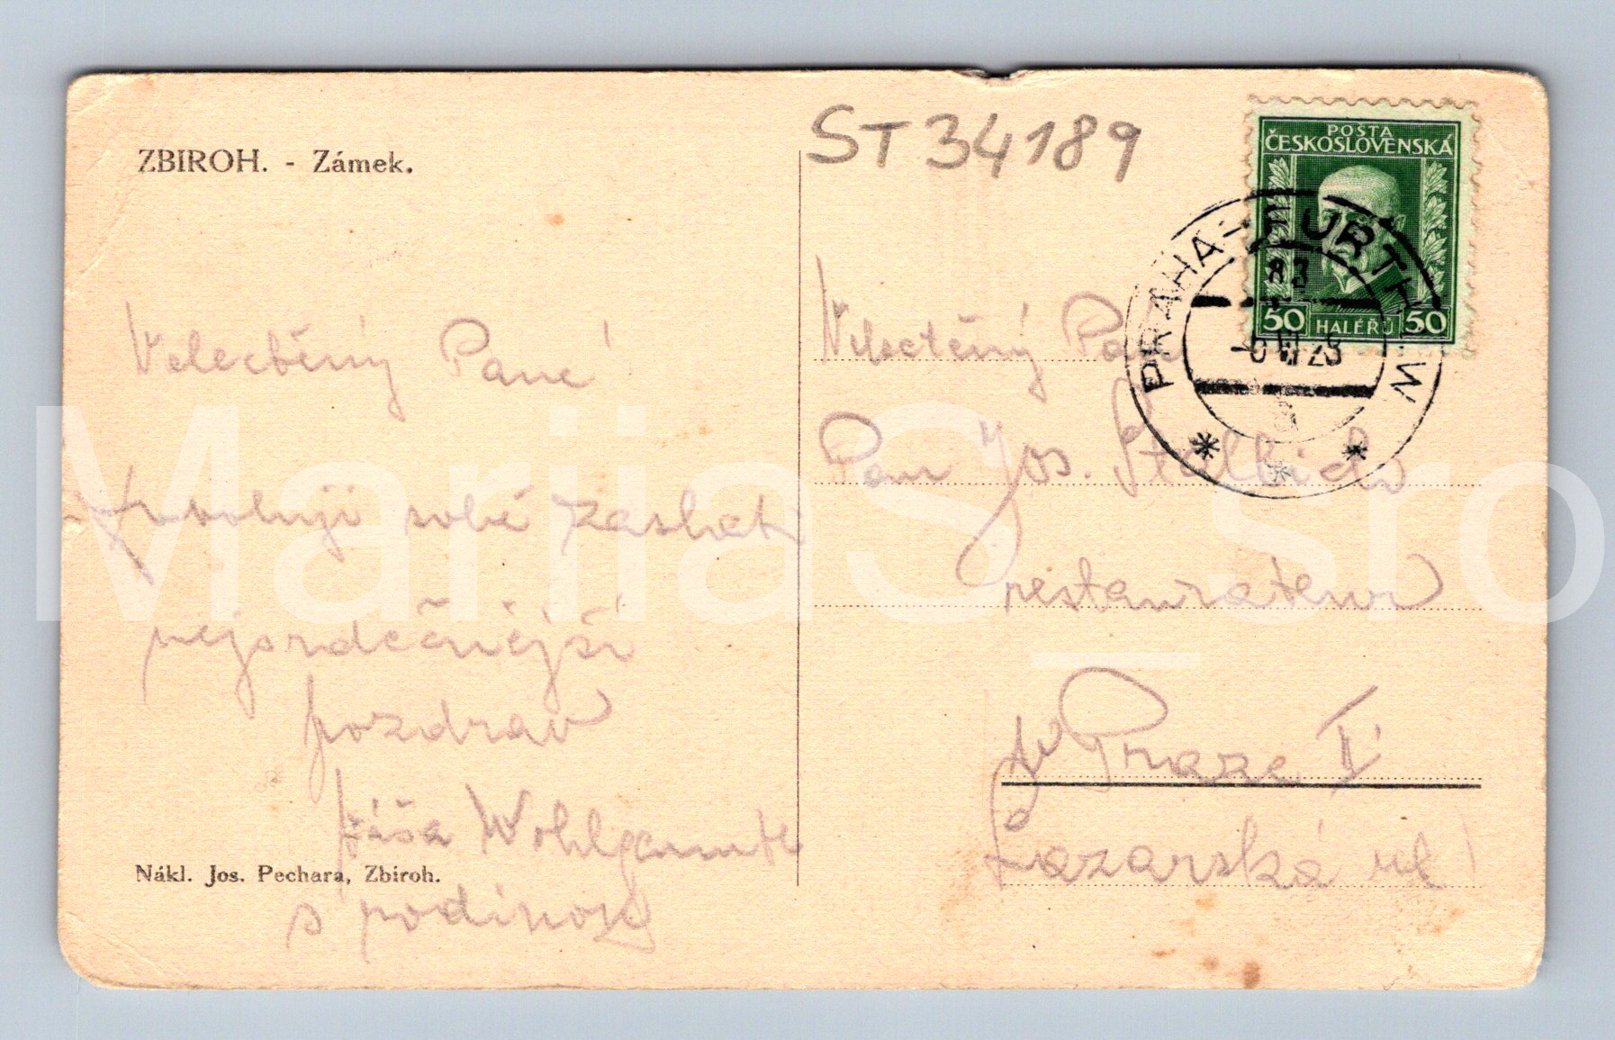 ZBIROH. - Zámek.
ST 34189
POŠTA
ČESKOSLOVENSKÁ
50 HALÉŘŮ 50
PRAHA-FURTH i. W
Velectěný Pane!
dovoluji sobě zaslati
nejsrdečnější
pozdrav
Wohlgamuth
s rodinou
Nákl. Jos. Pechara, Zbiroh.
Velectěný Pan
Pan Jos.
restaurateur
v Praze II
Lazarská ul
MariiaS_sro